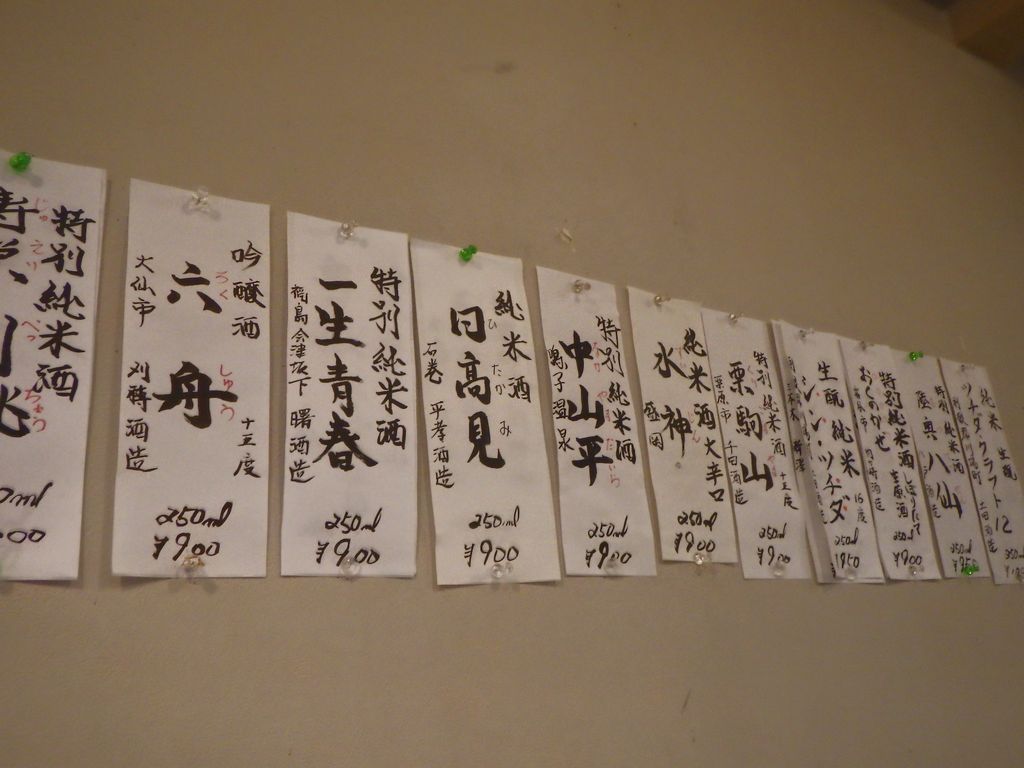 特別純米酒
じゅ えり べっ ちょう
00ml
00
吟醸酒
六舟
ろく しゅう
大仙市 刈穂酒造
十五度
250ml
¥900
特別純米酒
一生青春
福島会津坂下 曙酒造
250ml
¥900
純米酒
日高見
ひ たか み
石巻 平孝酒造
250ml
¥900
特別純米酒
中山平
鳴子温泉
250ml
¥900
純米酒大辛口
水神
盛岡
250ml
¥900
特別純米酒 十五度
栗駒山
栗原市 千田酒造
250ml
¥900
生酛純米
シン・ツチダ
250ml
¥950
特別純米酒しぼりたて生原酒
おくのかぜ
250ml
¥900
特別純米酒
陸奥八仙
250ml
¥950
純米 生酛
ツチダクラフト12